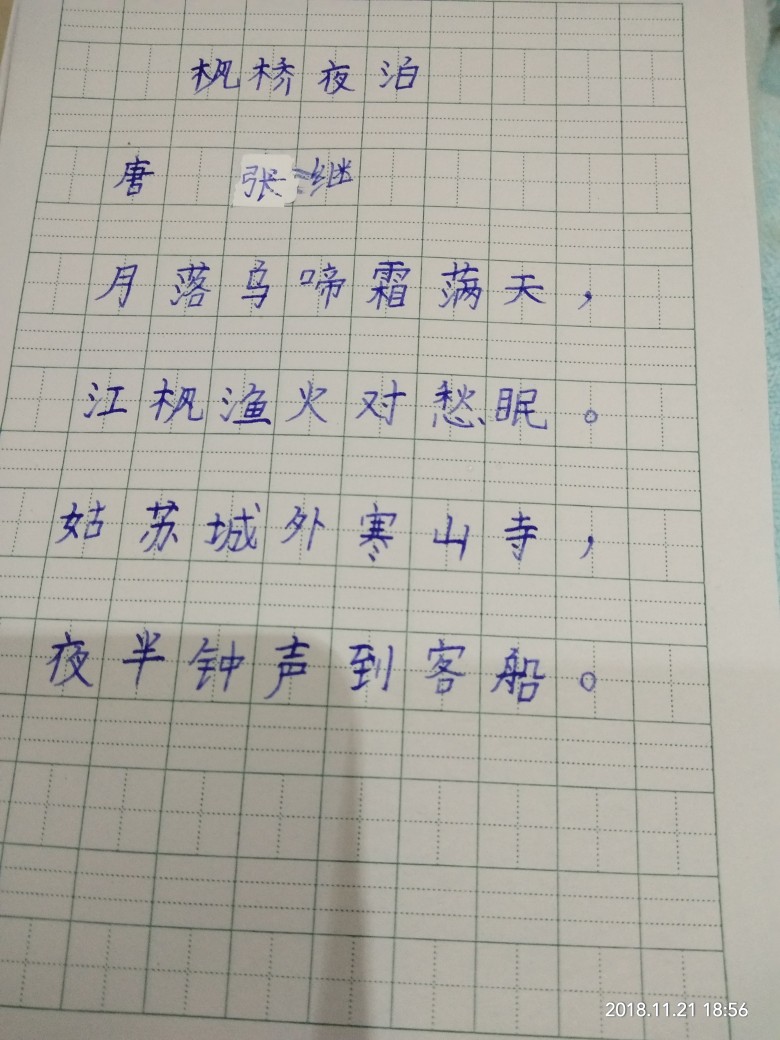 枫桥夜泊
唐 张继
月落乌啼霜满天，
江枫渔火对愁眠。
姑苏城外寒山寺，
夜半钟声到客船。
2018.11.21 18:56